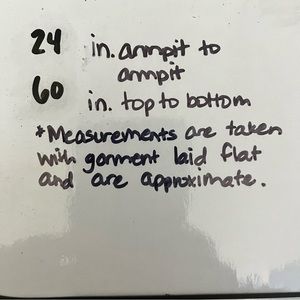 24 in. armpit to
armpit
60 in. top to bottom
*Measurements are taken
with garment laid flat
and are approximate.